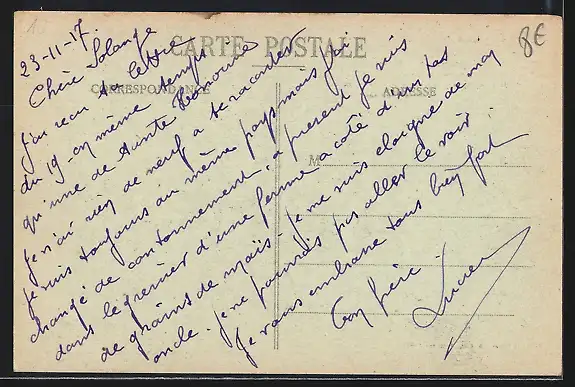 CARTE POSTALE
CORRESPONDANCE
ADRESSE
M
8€
23-11-17.
Chère Solange
J'ai reçu ta lettre
du 19 en même temps
qu'une de tante
Je n'ai rien de neuf a te raconter
je suis toujours au même pays mais j'ai
changé de cantonnement, a présent je suis
dans le grenier d'une ferme a côté d'un tas
de grains de maïs. Je me suis éloigné de mon
oncle. je ne pourrais pas aller le voir.
Je vous embrasse tous bien fort
Ton frère.
Lucien